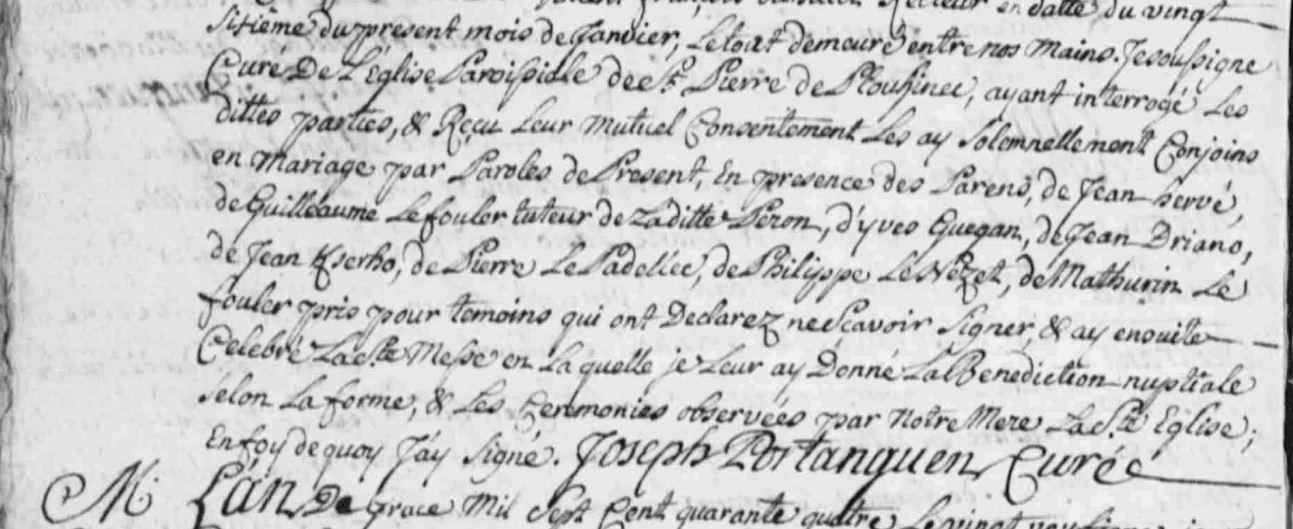 Recteur en datte du vingt
Sisiéme du present mois de Janvier, Le tout demeuré entre nos mains. Je soussigne
Curé De L'eglise Paroissialle de St. Pierre de Plouhinec, ayant interrogé Les
dittes parties, & Reçu Leur mutuel Consentement Les ay Solemnellement Conjoins
en Mariage par Paroles de Present, En presence des Parens, de Jean hervé,
de Guilleaume Le fouler tuteur de Laditte Peron, d'yves Guegan, de Jean Driano,
de Jean Kserho, de Pierre Le Padellec, de Philippe Le Nezet, de Mathurin Le
fouler pris pour temoins qui ont Declarez ne Scavoir Signer, & ay ensuite
Celebré La Ste Messe en La quelle je Leur ay Donné La Benediction nuptiale
selon La forme, & Les Ceremonies observées par Notre Mere La Ste Eglise;
En foy de quoy J'ay Signé. Joseph Portanguen Curé
M. L'an De grace Mil Sept Cent quarante quatre Le vingt